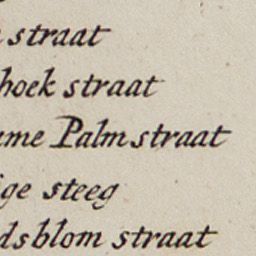 straat
hoek straat
me Palmstraat
ge steeg
dsblom straat